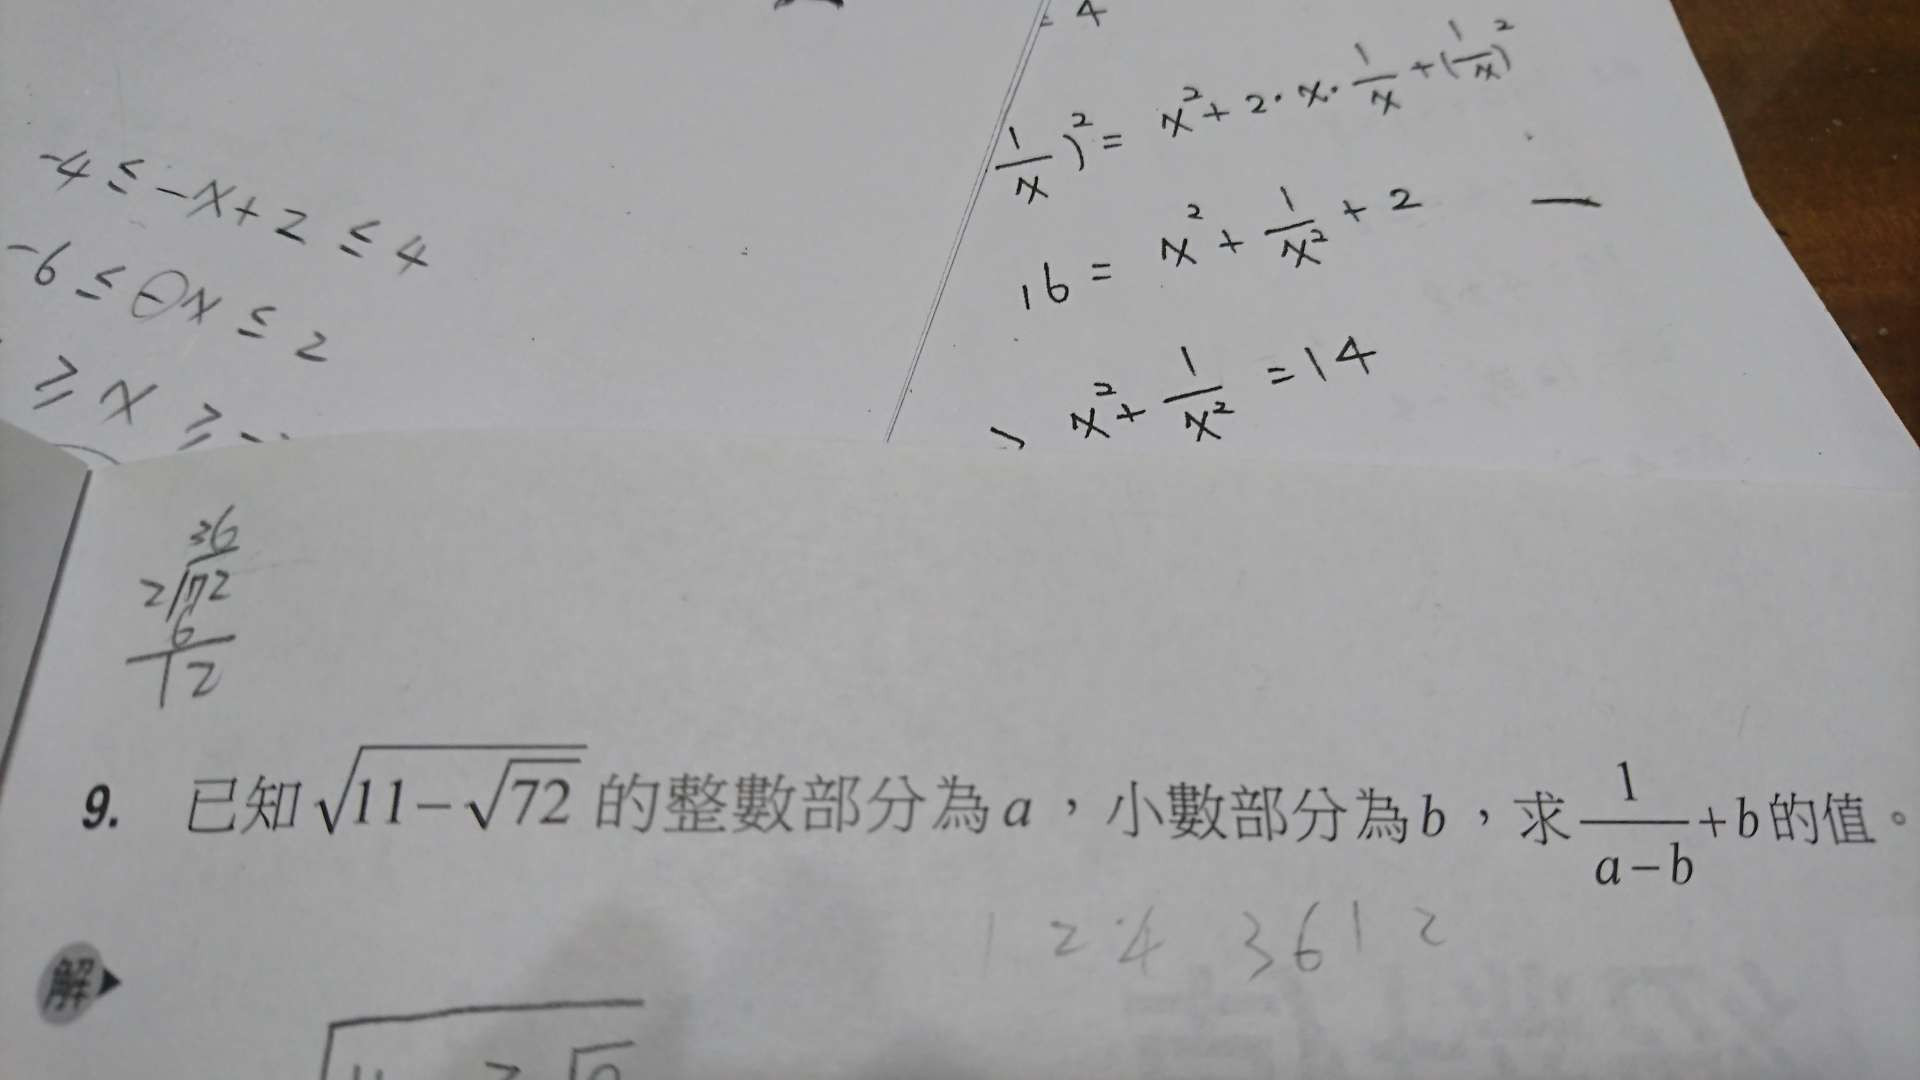 -4 ≤ -x+2 ≤ 4
-6 ≤ ⊖x ≤ 2
≥ x ≥ -
= 4
1/x)² = x²+2·x·1/x+(1/x)²
16 = x²+1/x²+2
x²+1/x²=14
36
2)72
6
12
9. 已知√(11-√72)的整數部分為a,小數部分為b,求1/(a-b)+b的值。
1 2 4 3 6 1 2
解